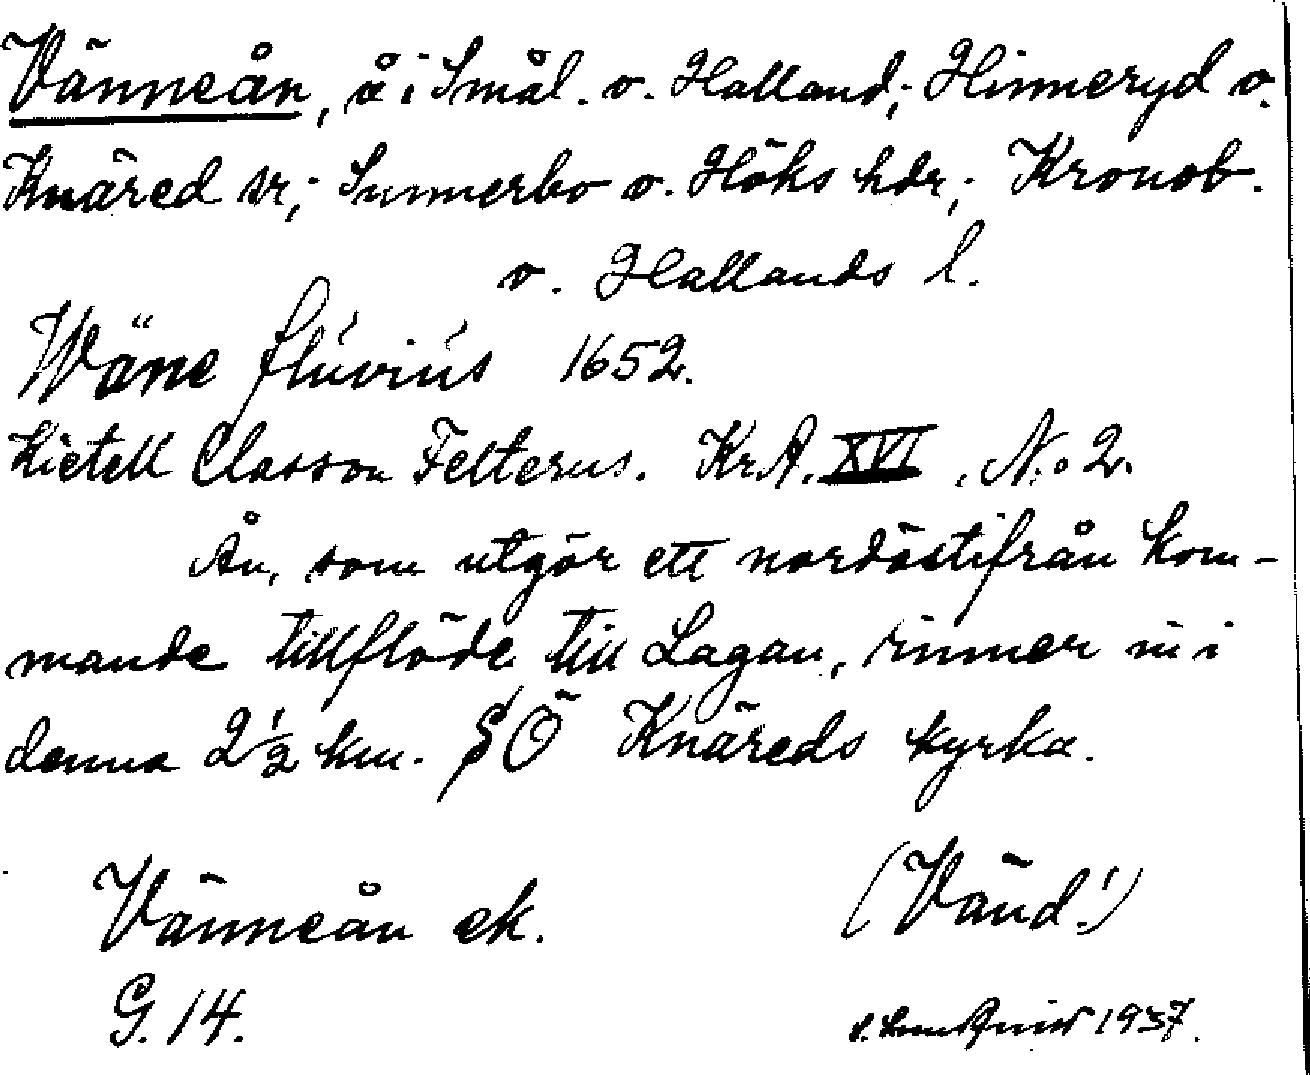 Vänneån, å i Smål. o. Halland; Hinneryd o.
Knäred sr; Sunnerbo o. Höks hdr; Kronob.
o. Hallands l.
Wäne flúviús 1652.
Kietell Classon Felterus. KrA. XVI. N:o 2.
Ån, som utgör ett nordöstifrån kom-
mande tillflöde till Lagan, rinner in i
denna 2 1/2 km. SÖ Knäreds kyrka.
Vänneån ek. (Vänd!)
G. 14. 1937.